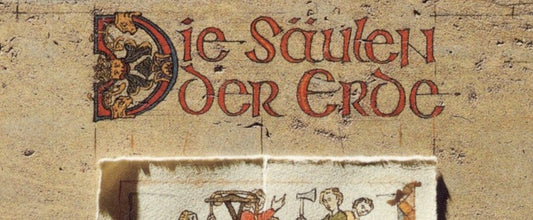 Die Säulen
der Erde